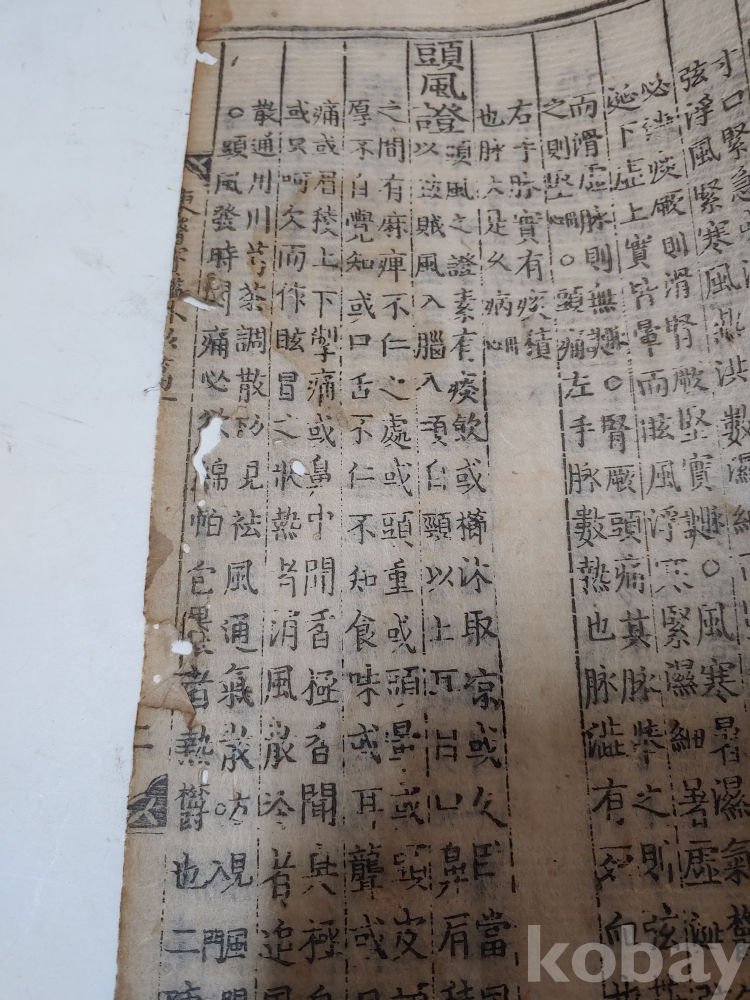 寸口緊急
弦浮風緊寒風熱洪數濕細
必濇痰厥則滑腎厥堅實脉訣○風寒暑濕氣
涎下虛上實皆暈而眩風浮寒緊濕細暑虛澁
而滑虛脉則無脉訣○腎厥頭痛其脉擧之則弦
之則堅綱目○頭痛左手脉數熱也脉澁有死血
右手脉實有痰積
也脉大是久病綱目
頭風證
頭風之證素有痰飮或櫛沐取凉或久臥當風
以致賊風入腦入項自頸以上耳目口鼻眉稜
之間有麻痺不仁之處或頭重或頭暈或頭皮
厚不自覺知或口舌不仁不知食味或耳聾或
痛或眉稜上下掣痛或鼻中聞香極香聞臭極
或只呵欠而作眩冒之狀熱者消風散冷者追風
散通用川芎茶調散方見祛風通氣散方見風門入門
○頭風發時悶痛必欲綿帕包裹者熱鬱也二陳
二
kobay